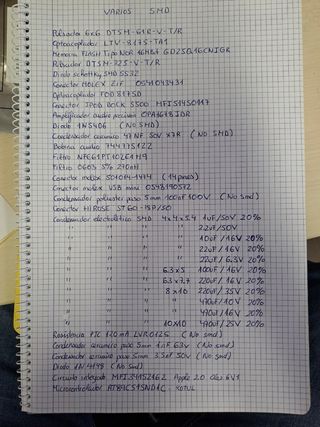 VARIOS SMD
Pulsador 6x6 DTSM-61R-V-T/R
Optoacoplador LTV-817S-TA1
Memoria FLASH Tipo NOR 16Mbit GD25Q16CNIGR
Pulsador DTSM-32S-V-T/R
Diodo schottky SMD SS32
Conector MOLEX ZIF 0541043431
Optoacoplador FOD817SD
Conector IPOD ROCK 5500 MFI34S0117
Amplificador audio precisión OPA1618IDR
Diodo 1N5406 (No SMD)
Condensador cerámico 47NF 50V X7R (No SMD)
Bobina audio 744775122
Filtro NFE61PT102E1H9
Filtro 0603 5% 270nH
Conector molex 501014-1474 (14 pines)
Conector molex USB mini 0548190572
Condensador poliester paso 5mm 100nF 100V (No smd)
Conector HIROSE ST60-18P/30
Condensador electrolítico SMD 4x4x5.4 1uF/50V 20%
" " " " 2.2uF/50V
" " " " 10uF/16V 20%
" " " " 22uF/16V 20%
" " " " 22uF/6.3V 20%
" " " 6.3x5 100uF/16V 20%
" " " 6.3x7.7 220uF/16V 20%
" " " 8x10 220uF/35V 20%
" " " " 470uF/10V 20%
" " " " 470uF/16V 20%
" " " 10x10 470uF/25V 20%
Resistencia PTC 120mA LVR012S (No smd)
Condensador cerámico paso 5mm 1nF 63V (No smd)
Condensador cerámico paso 5mm 3.3pF 50V (No smd)
Diodo 1N4148 (No smd)
Circuito integrado MFI341S2162 Apple 2.0
Microcontrolador AT89C51SND1C-ROTUL